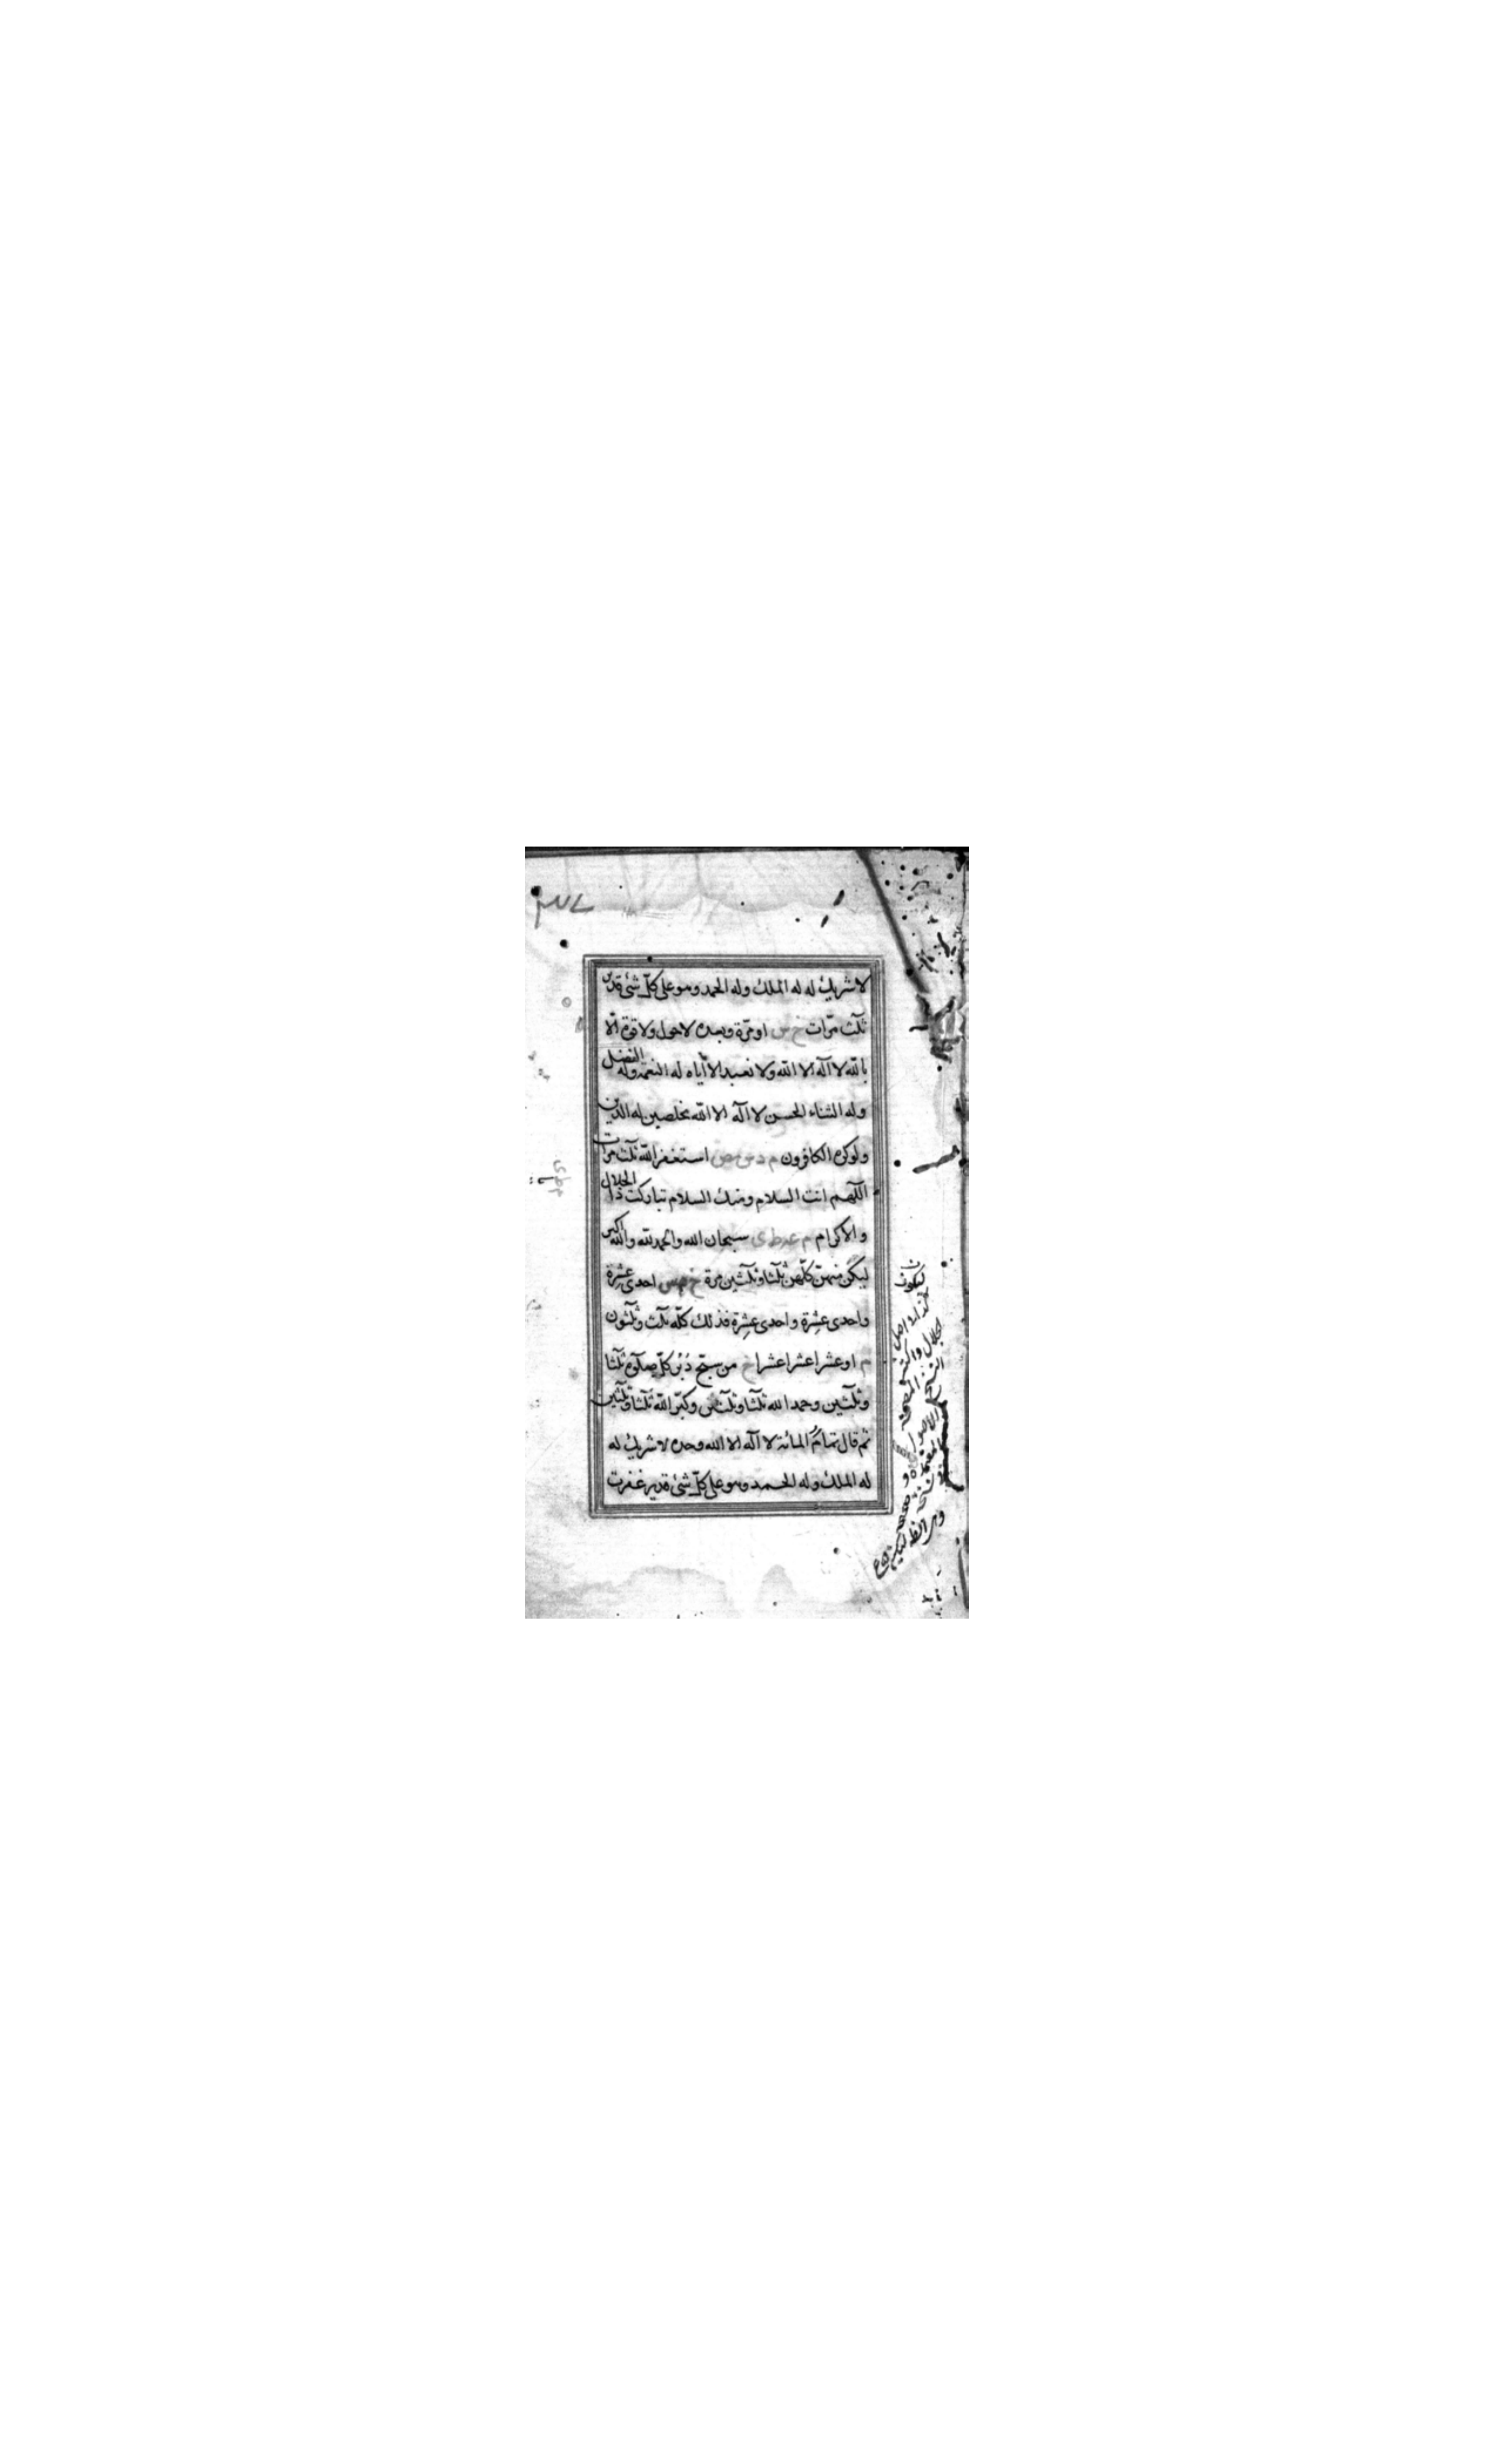 لا شريك له له الملك وله الحمد وهو على كلّ شئ قدير
ثلث مرّات خ س او مرّة وبعده لا حول ولا قوة الّا
بالله لا اله الا الله ولا نعبد الا اياه له النعمة وله الفضل
وله الثناء الحسن لا اله الا الله مخلصين له الدين
ولوكره الكافرون م د س مص استغفر الله ثلث مرات
اللهم انت السلام ومنك السلام تباركت ذا الجلال
والاكرام م عه ط ى سبحان الله والحمد لله والله اكبر
ليكن منهنّ كلّهن ثلثا وثلثين مرة خ م س احدى عشرة
واحدى عشرة واحدى عشرة فذلك كلّه ثلث وثلثون
م او عشرا عشرا عشرا خ من سبّح دُبُر كلّ صلوة ثلثا
وثلثين وحمد الله ثلثا وثلثين وكبّر الله ثلثا وثلثين
ثم قال تمامُ المائة لا اله الا الله وحده لا شريك له
له الملك وله الحمد وهو على كلّ شئ قدير غفرت
ليكون